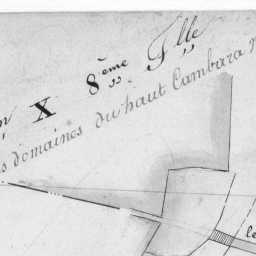 X 8ème Flle
domaines du haut Cambara
le